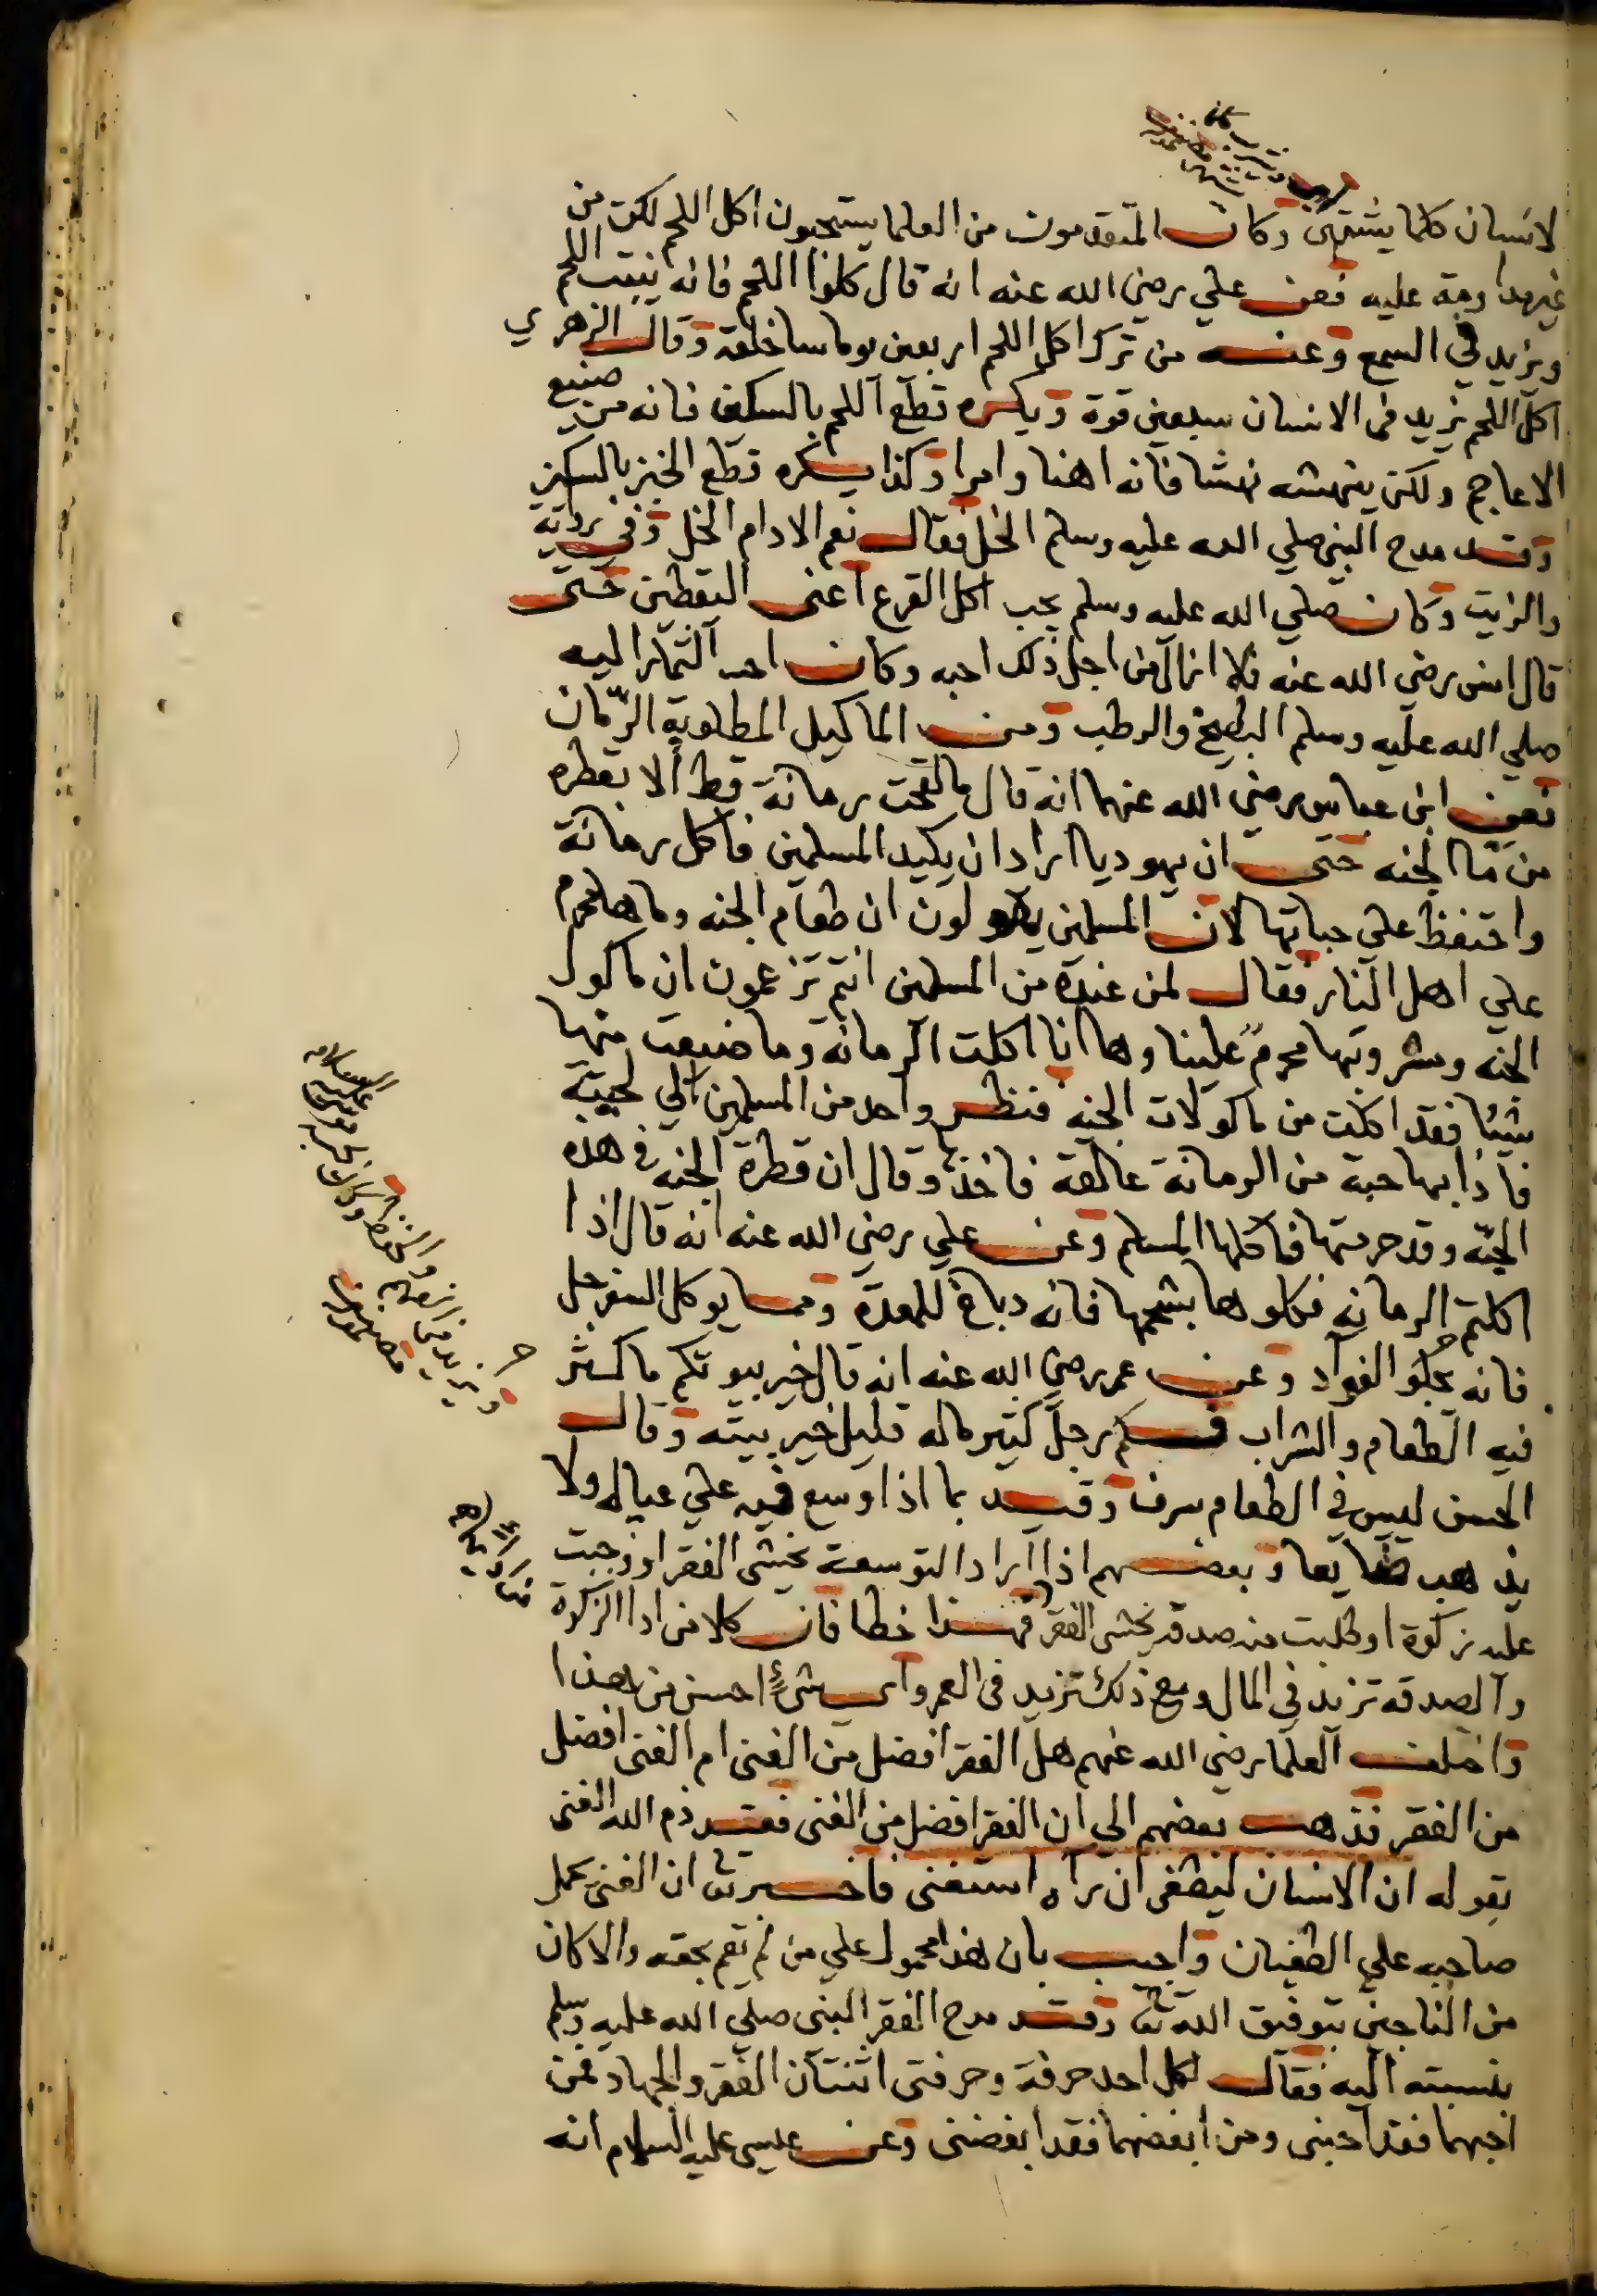 لانسان كلما يشتهى وكان المتقدمون من العلما يستحبون اكل اللحم لكن من
غير مداومة عليه فعن علي رضي الله عنه انه قال كلوا اللحم فانه ينبت اللحم
ويزيد في السمع وعنه من ترك اكل اللحم اربعين يوما ساخلقه وقال الزهري
اكل اللحم يزيد في الانسان سبعين قوة ويكره قطع اللحم بالسكين فانه من صنيع
الاعاجم ولكن ينهشه نهشا فانه اهنا وامرا وكذا يكره قطع الخبز بالسكين
وقد مدح النبي صلي الله عليه وسلم الخل فقال نعم الادام الخل وفي رواية
والزيت وكان صلي الله عليه وسلم يحب اكل القرع اعني اليقطين حتى
قال انس رضي الله عنه فلا ازال من اجل ذلك احبه وكان احب الثمار اليه
صلي الله عليه وسلم البطيخ والرطب ومن الماكيل المطلوبة الرّمان
فعن ابن عباس رضي الله عنهما انه قال ما لقحت رمانة قط الا بقطره
من ما الجنه حتى ان يهوديا اراد ان يكيد المسلمين فاكل رمانة
واحتفظ علي حباتها لان المسلمين يقولون ان طعام الجنه وماها محرم
علي اهل النار فقال لمن عنده من المسلمين انتم تزعمون ان ماكول
الجنه ومشروبها محرم علينا وها انا اكلت الرمانة وما ضيعت منها
شيئا فقد اكلت من ماكولات الجنه فنظر واحد من المسلمين الي لحيته
فاذا بها حبة من الرمانة عالقة فاخذها وقال ان قطرة الجنه في هذه
الحبّه وقد حرمتها فاكلها المسلم وعن علي رضي الله عنه انه قال اذا
اكلتم الرمانه فكلوها بشحمها فانه دباغ للمعدة ومما يوكل السفرجل
فانه يجلو الفواد وعن عمر رضي الله عنه انه قال خير بيوتكم ما كثر
فيه الطعام والشراب فكم رجل كثير ماله قليل خير بيته وقال
الحسن ليس في الطعام سرف وقيد بما اذا وسع فيه علي عياله ولا
يذهب ضايعا وبعضهم اذا اراد التوسعة يخشي الفقر او وجبت
عليه زكوة او طلبت منه صدقه يخشي الفقر فهذا خطا فان كلا من ادا الزكوة
والصدقه تزيد في المال ومع ذلك تزيد في العمر واي شئ احسن من هذا
واختلف العلما رضي الله عنهم هل الفقر افضل من الغني ام الغني افضل
من الفقر فذهب بعضهم الي ان الفقر افضل من الغني فقد ذم الله الغني
بقوله ان الانسان ليطغى ان راه استغنى فاخبر تعا ان الغني يحمل
صاحبه علي الطغيان واجيب بان هذا محمول علي من لم يقم بحقه والا كان
من الناجين بتوفيق الله تعا وقد مدح الفقر النبي صلي الله عليه وسلم
بنسبته اليه فقال لكل احد حرفة وحرفتي اثنتان الفقر والجهاد فمن
احبهما فقد احبني ومن ابغضهما فقد ابغضني وعن عيسى عليه السلام انه